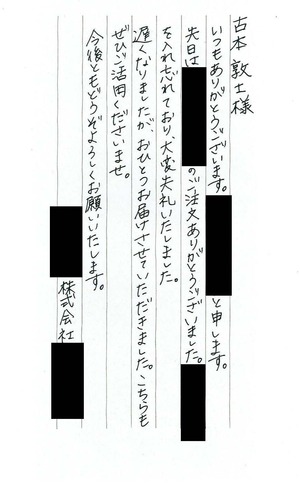 古本 敦士様
いつもありがとうございます。 と申します。
先日は のご注文ありがとうございました。
を入れ忘れており、大変失礼いたしました。
遅くなりましたが、おひとつお届けさせていただきました。こちらも
ぜひご活用くださいませ。
今後ともどうぞよろしくお願いいたします。
株式会社